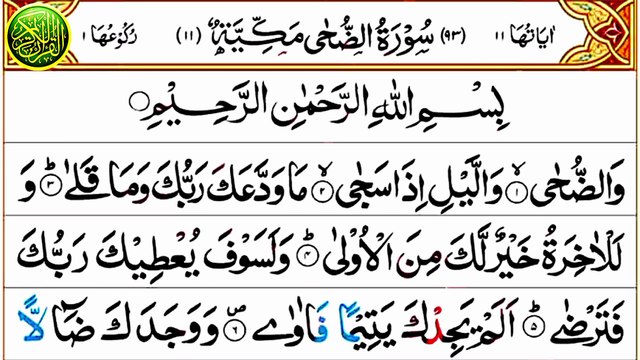 اٰيَاتُهَا ١١ (٩٣) سُوْرَةُ الضُّحٰى مَكِّيَّةٌ (١١) رُكُوْعُهَا ١
بِسْمِ اللهِ الرَّحْمٰنِ الرَّحِيْمِ
وَالضُّحٰى ۙ‏﴿١﴾ وَالَّيْلِ اِذَا سَجٰى ۙ‏﴿٢﴾ مَا وَدَّعَكَ رَبُّكَ وَمَا قَلٰى ؕ‏﴿٣﴾ وَ
لَلْاٰخِرَةُ خَيْرٌ لَّكَ مِنَ الْاُوْلٰى ؕ‏﴿٤﴾ وَلَسَوْفَ يُعْطِيْكَ رَبُّكَ
فَتَرْضٰى ؕ‏﴿٥﴾ اَلَمْ يَجِدْكَ يَتِيْمًا فَاٰوٰى ۪‏﴿٦﴾ وَوَجَدَكَ ضَآلًّا